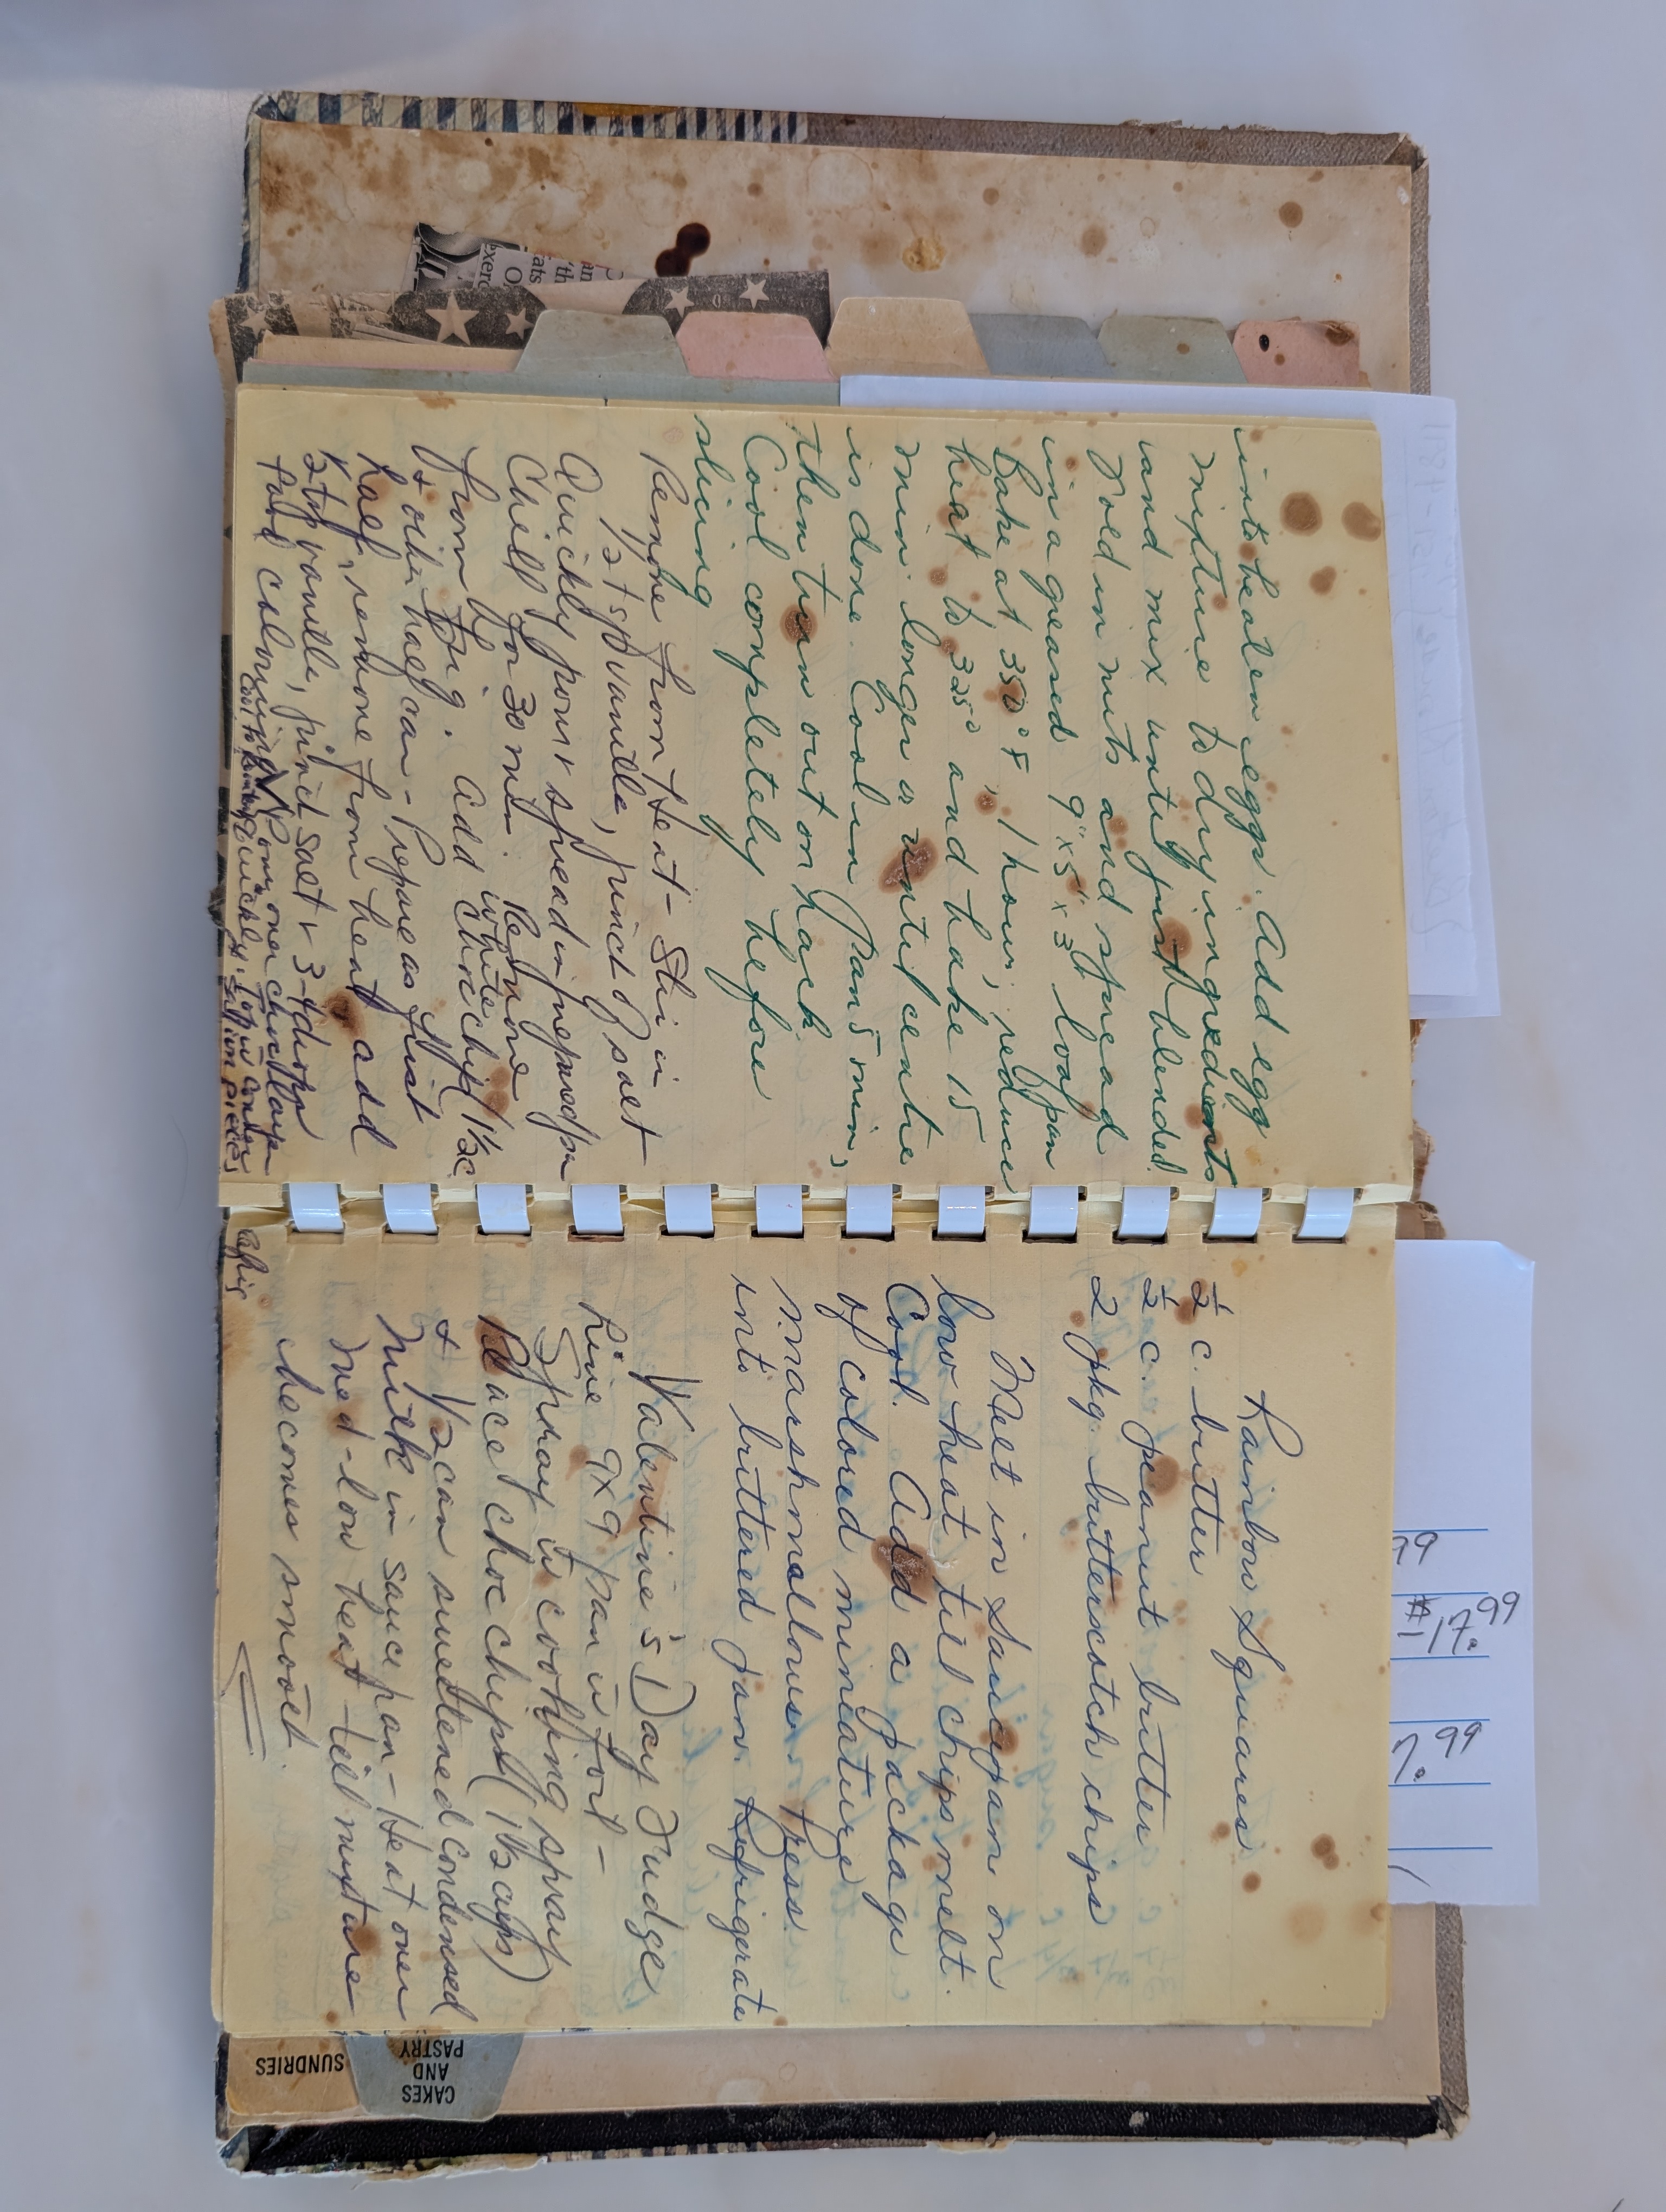 into beaten eggs. Add egg
mixture to dry ingredients
and mix until just blended.
Fold in nuts and spread
in a greased 9" x 5" x 3" loaf pan
Bake at 350° F, 1 hour, reduce
heat to 325° and bake 15
min. longer or until center
is done. Cool in pan 5 min,
then turn out on rack.
Cool completely before
slicing
Remove from Heat - Stir in
1/2 tsp vanilla, pinch of salt
Quickly pour & spread in prepared pan
Chill for 30 min. Remove
from frig. Add white choc chips (1 1/2 c
& other half can - Prepare as first
half, remove from heat add
1/2 tsp vanilla, pinch salt & 3-4 drops
food coloring. Pour over choc layer
quickly.
Rainbow Squares
1/2 c. butter
1/2 c. peanut butter
2 pkg. butterscotch chips
Melt in saucepan on
low heat til chips melt.
Cool. Add a package
of colored miniature
marshmallows. Press
into buttered pan. Refrigerate
Valentine's Day Fudge
Line 9x9 pan w foil -
Spray w cooking spray
Place choc chips (1 1/2 cups)
& 1/2 can sweetened condensed
milk in sauce pan - Heat over
med-low heat - till mixture
becomes smooth.
99
$17.99
7.99
CAKES
AND
PASTRY
SUNDRIES